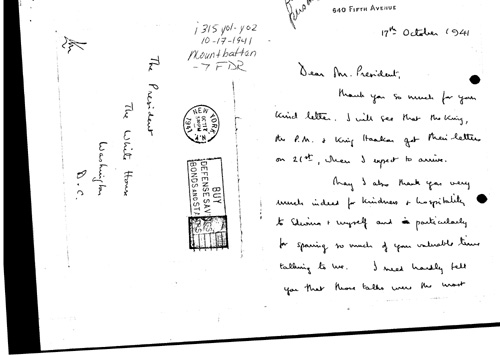 i315 y01-y02
10-17-1941
Mountbatten
→ FDR
The President
The White House
Washington
D.C.
NEW YORK, N.Y.
OCT 17
1941
BUY
DEFENSE SAVINGS
BONDS AND STAMPS
640 FIFTH AVENUE
17th October 1941
Dear Mr. President,
Thank you so much for your
kind letter. I will see that the King,
the P.M. & King Haakon get their letters
on 21st, when I expect to arrive.
May I also thank you very
much indeed for kindness & hospitality
to Edwina & myself and particularly
for sparing so much of your valuable time
talking to me. I need hardly tell
you that those talks were the most